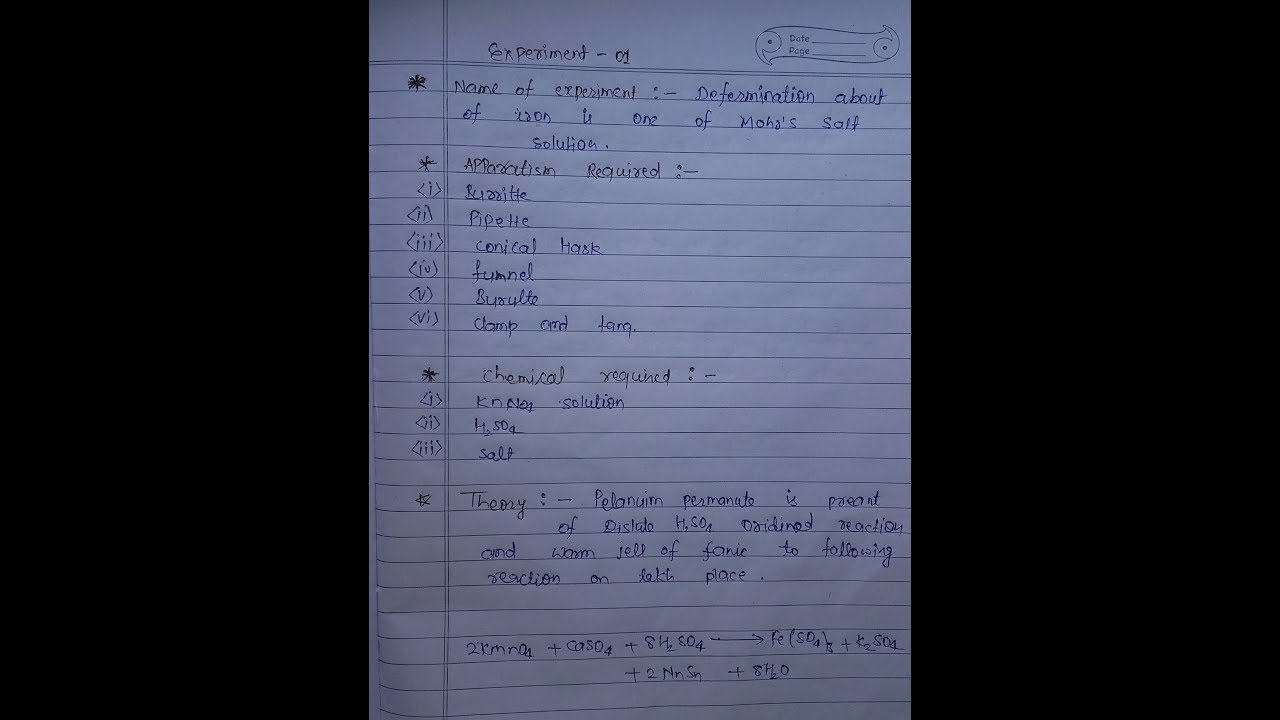 Date
Page
Experiment - 01
* Name of experiment :- Determination about
of iron is one of Mohr's Salt
solution.
* APParatism Required :-
<i> Burritte
<ii> Pipette
<iii> Conical Hask
<iv> funnel
<v> Burulte
<vi> Clamp and tang.
* Chemical required :-
<i> KnNo4 solution
<ii> H2SO4
<iii> Salt
* Theory :- Pelanuim permanute is preant
of Dislate H2SO4 Oridined reaction
and warm jell of fanic to following
reaction on lakh place.
2Kmno4 + CaSO4 + 8H2SO4 → Fe(SO4)3 + K2SO4
+ 2NnSn + 8H2O